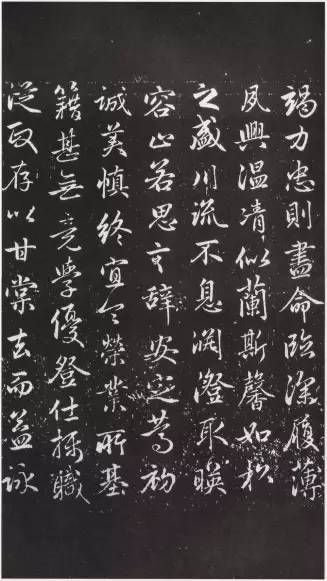 竭力忠則盡命臨深履薄
夙興溫凊似蘭斯馨如松
之盛川流不息淵澄取暎
容止若思言辭安定篤初
誠美慎終宜令榮業所基
籍甚無竟學優登仕攝職
從政存以甘棠去而益詠